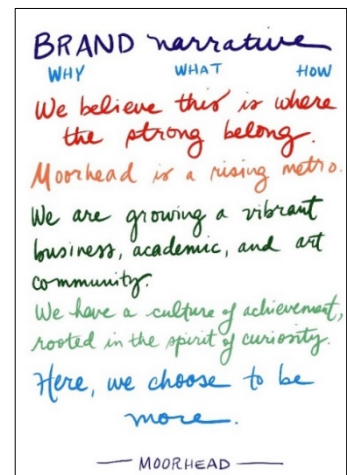 BRAND narrative
WHY WHAT HOW
We believe this is where
the strong belong.
Moorhead is a rising metro.
We are growing a vibrant
business, academic, and art
community.
We have a culture of achievement,
rooted in the spirit of curiosity.
Here, we choose to be
more.
— MOORHEAD —